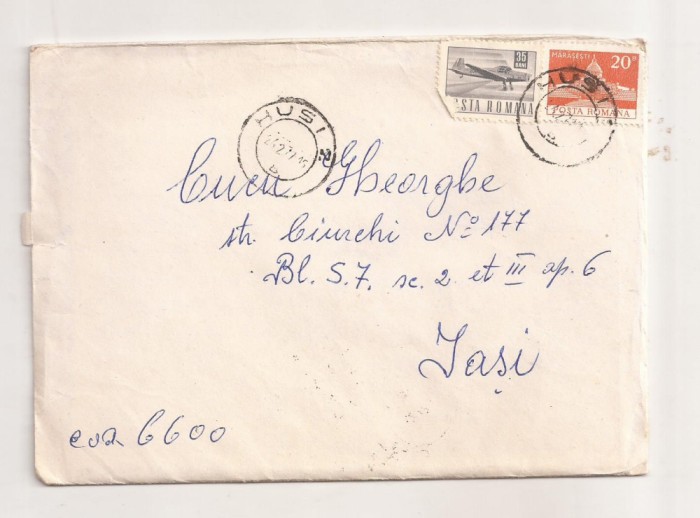 35
BANI
POSTA ROMANA
MĂRĂŞEŞTI
20 B
POSTA ROMANA
HUSI
HUSI
Cucu Gheorghe
str. Ciurchi No 177
Bl. S.7. sc. 2 et III ap. 6
Iași
cod 6600